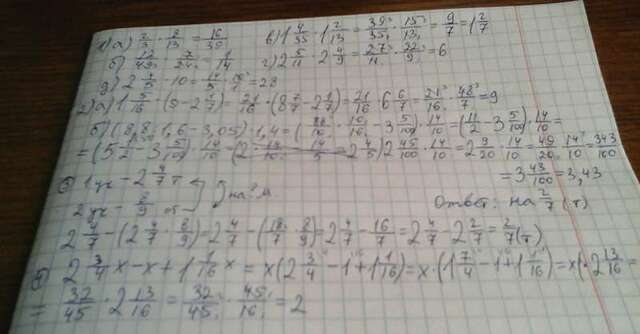 1) а) 2/3 · 8/13 = 16/39 в) 1 4/35 · 1 2/13 = 39/35 · 15/13 = 9/7 = 1 2/7
б) 12/49 · 7/24 = 1/14 г) 2 5/11 · 2 4/9 = 27/11 · 22/9 = 6
д) 2 4/5 · 10 = 14/5 · 10/1 = 28
2) а) 1 5/16 · (9 - 2 1/7) = 21/16 · (8 7/7 - 2 1/7) = 21/16 · 6 6/7 = 21/16 · 48/7 = 9
б) (8,8 : 1,6 - 3,05) · 1,4 = (88/10 · 10/16 - 3 5/100) · 14/10 = (11/2 - 3 5/100) · 14/10 =
= (5 1/2 - 3 5/100) · 14/10 = 2 45/100 · 14/10 = 2 9/20 · 14/10 = 49/20 · 14/10 = 343/100
= 3 43/100 = 3,43
1 уч - 2 4/7 т
2 уч - 8/9 от на? м
Ответ: на 2/7 (т)
2 4/7 - (2 4/7 · 8/9) = 2 4/7 - (18/7 · 8/9) = 2 4/7 - 16/7 = 2 4/7 - 2 2/7 = 2/7 (т)
2 3/4 x - x + 1 1/16 x = x(2 3/4 - 1 + 1 1/16) = x · (1 7/4 - 1 + 1 1/16) = x · 2 13/16 =
= 32/45 · 2 13/16 = 32/45 · 45/16 = 2